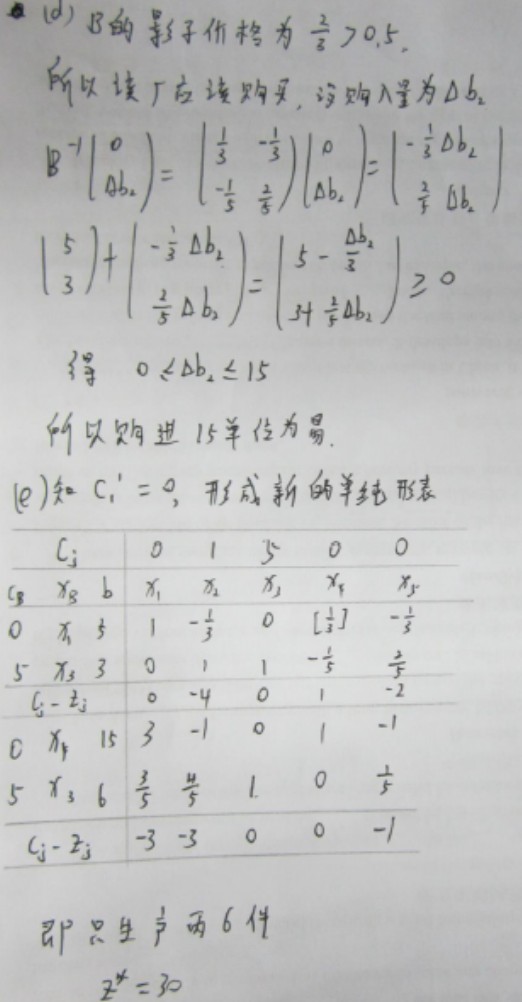 (d) B的影子价格为 2/3 > 0.5,
所以该厂应该购买, 设购入量为 Δb₂
B⁻¹ (0; Δb₂) = (1/3 -1/3; -1/5 2/5) (0; Δb₂) = (-1/3 Δb₂; 2/5 Δb₂)
(5; 3) + (-1/3 Δb₂; 2/5 Δb₂) = (5 - Δb₂/3; 3+ 2/5 Δb₂) ≥ 0
得 0 ≤ Δb₂ ≤ 15
所以购进 15单位为易.
(e) 知 C₁' = 0, 形成新的单纯形表
Cj 0 1 5 0 0
CB XB b x₁ x₂ x₃ x₄ x₅
0 x₁ 5 1 -1/3 0 [1/3] -1/3
5 x₃ 3 0 1 1 -1/5 2/5
Cj - Zj 0 -4 0 1 -2
0 x₄ 15 3 -1 0 1 -1
5 x₃ 6 3/5 4/5 1 0 1/5
Cj - Zj -3 -3 0 0 -1
即只生产丙6件
z* = 30